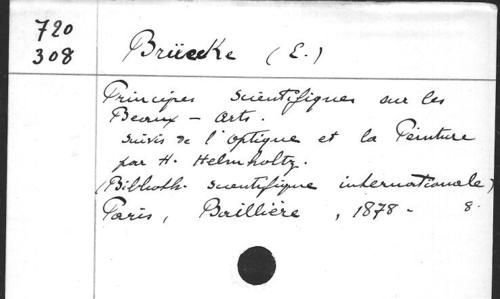 720
308
Brücke (E.)
Principes scientifiques sur les
Beaux-arts.
suivis de l'optique et la Peinture
par H. Helmholtz.
(Biblioth. scientifique internationale)
Paris, Baillière, 1878 - 8.